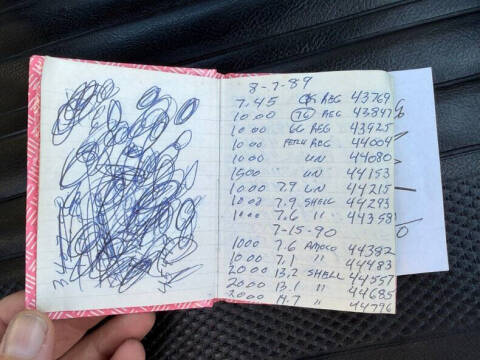 8-7-89
7.45 REG 43769
10.00 76 REG 43847
10.00 66 REG 43925
10.00 REG 44004
10.00 UN 44080
15.00 UN 44153
10.00 7.9 UN 44215
10.00 7.9 SHELL 44293
10.00 7.6 " 44358
7-15-90
10.00 7.6 AMOCO 44382
10.00 7.1 " 44483
20.00 13.2 SHELL 44557
20.00 13.1 " 44685
20.00 14.7 " 44796